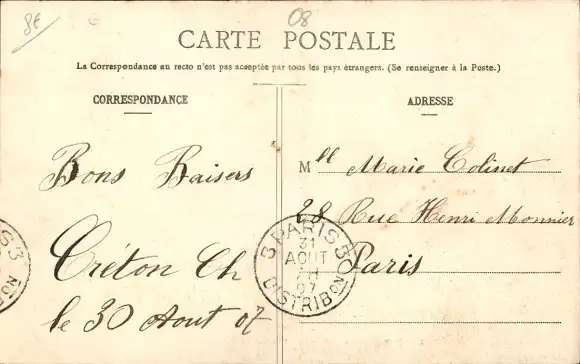 8€
08
CARTE POSTALE
La Correspondance au recto n'est pas acceptée par tous les pays étrangers. (Se renseigner à la Poste.)
CORRESPONDANCE
Bons Baisers
Créton Ch
le 30 Aout 07
ADRESSE
Mlle Marie Colinet
28 Rue Henri Monnier
Paris
3 PARIS 3
31
AOUT
07
DISTRIBON
S 3